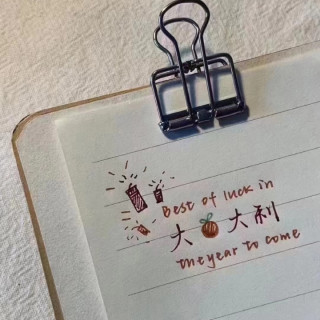 Best of luck in
大大利
the year to come